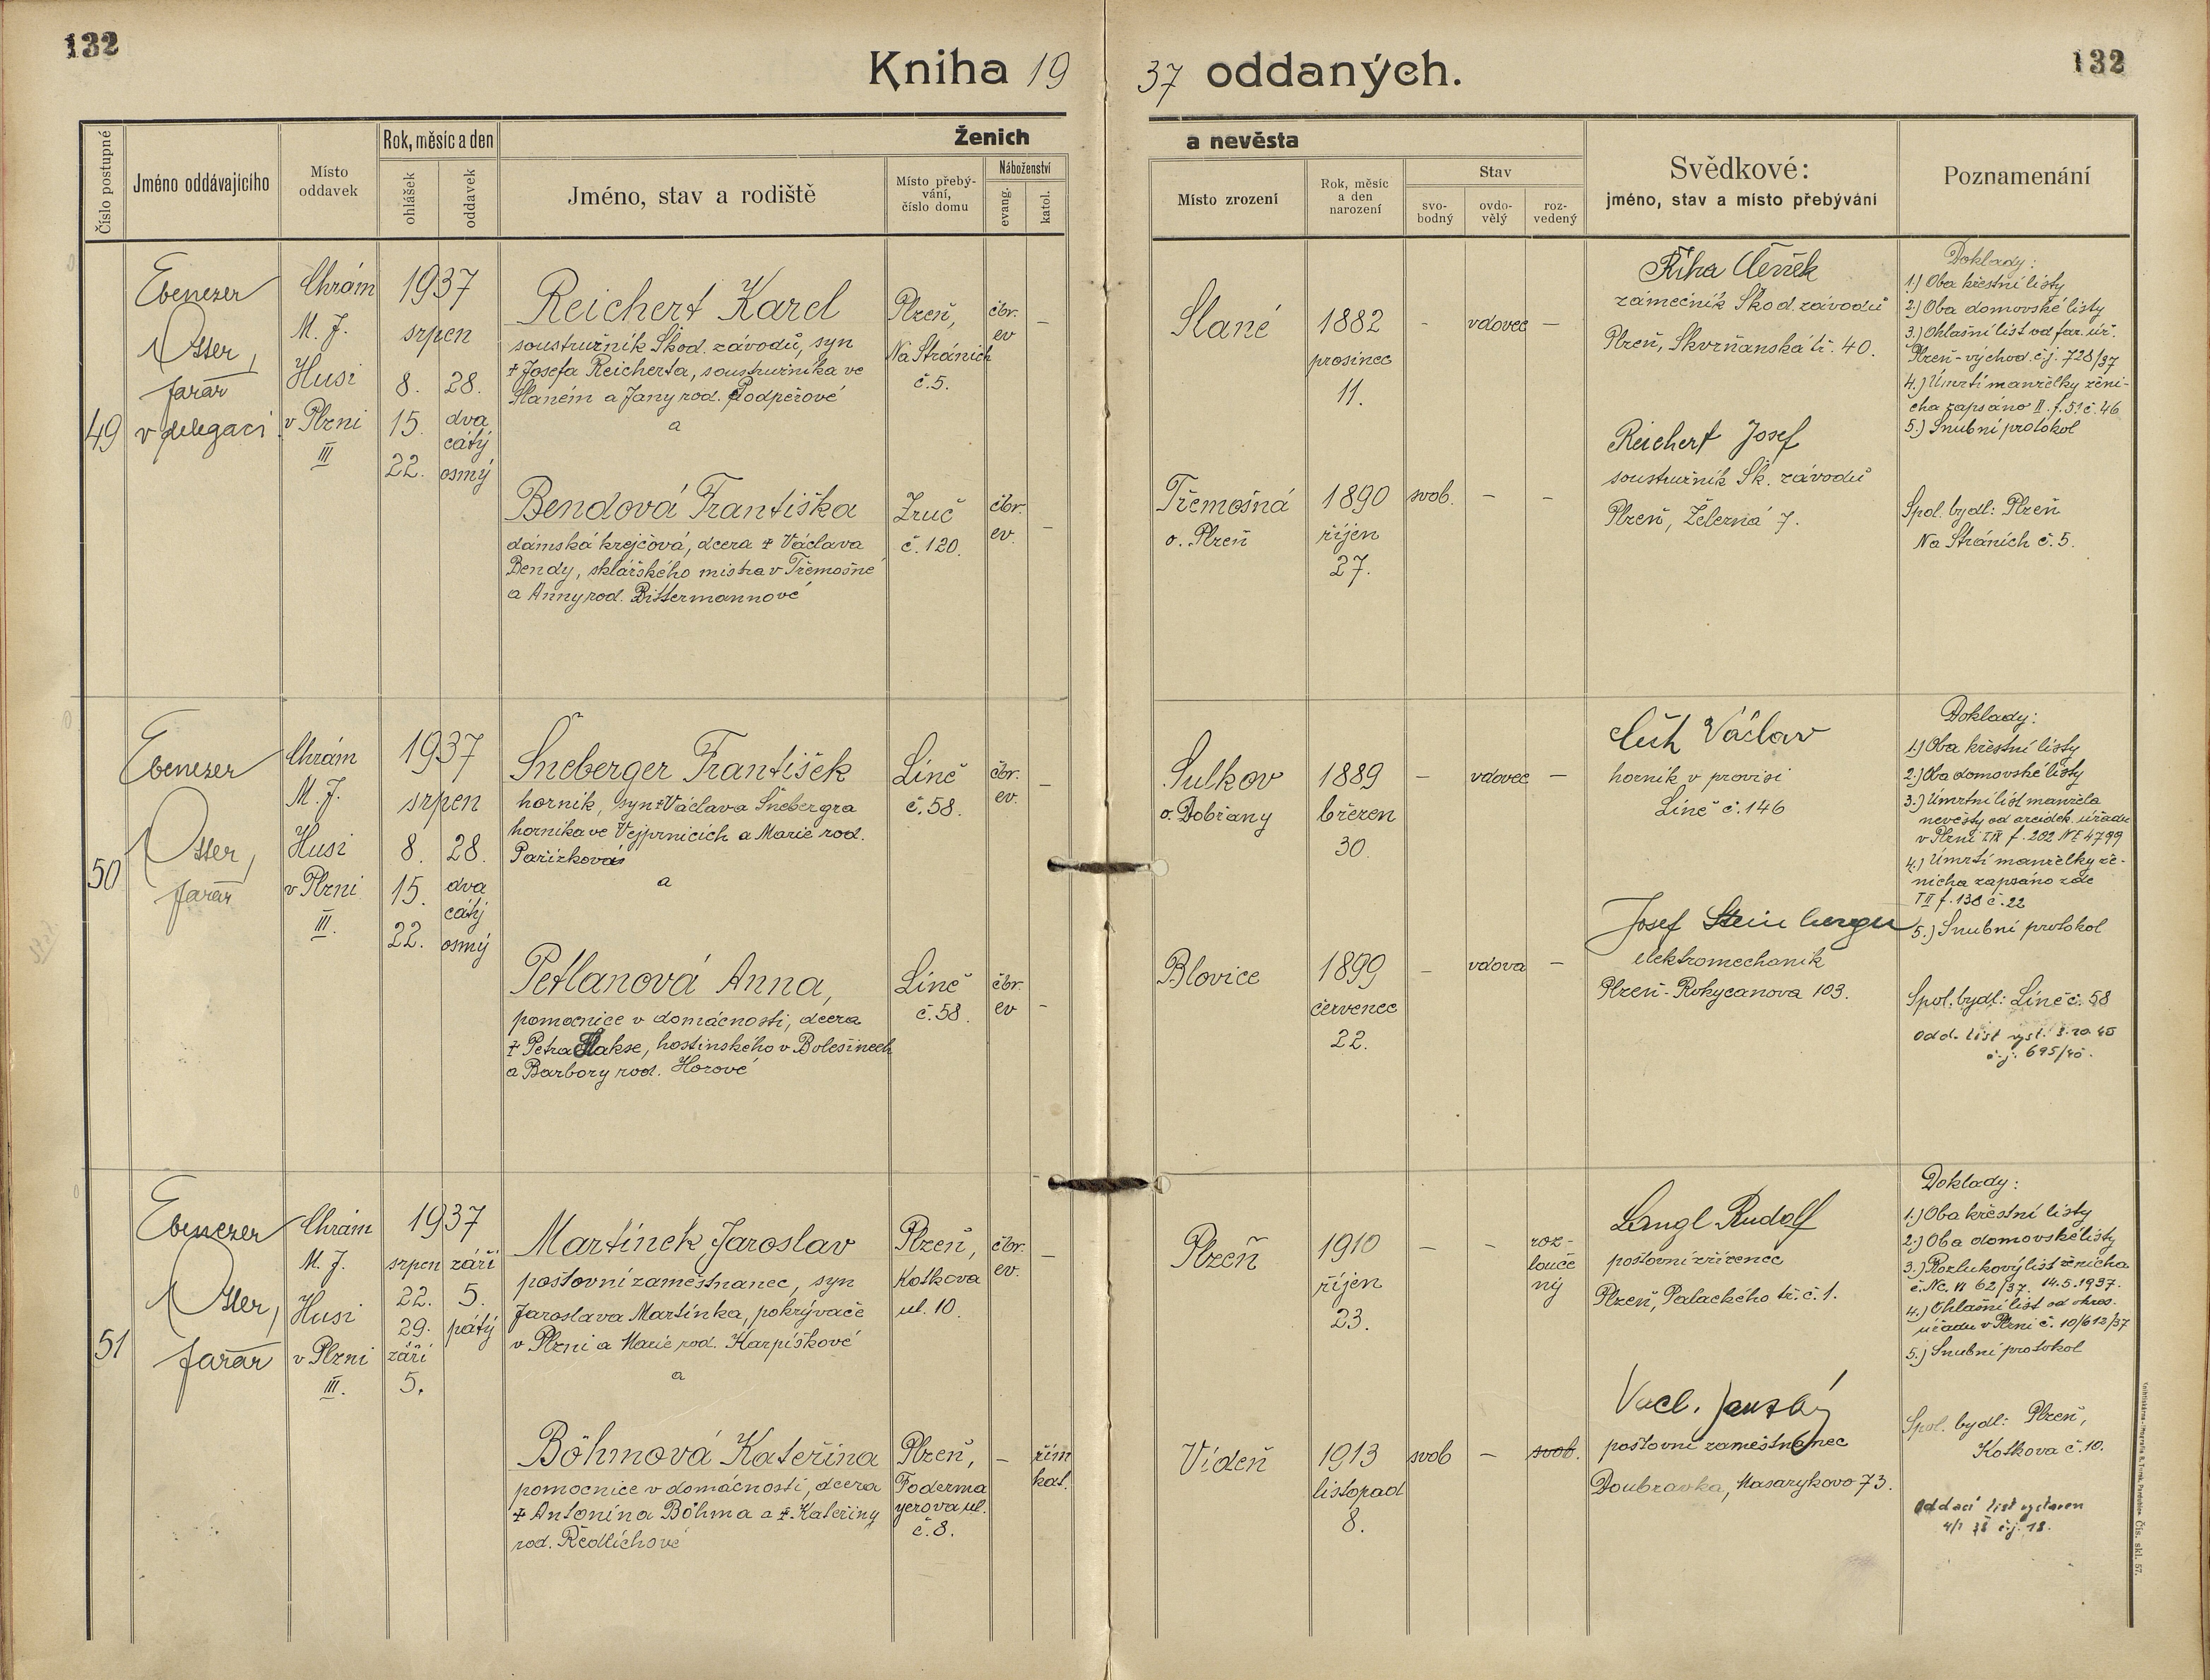 132
Kniha 19
37 oddaných.
132
Číslo postupné
Jméno oddávajícího
Místo
oddavek
Rok, měsíc a den
ohlášek
oddavek
Ženich
Jméno, stav a rodiště
Místo přebý-
vání,
číslo domu
Náboženství
evang.
katol.
a nevěsta
Místo zrození
Rok, měsíc
a den
narození
Stav
svo-
bodný
ovdo-
vělý
roz-
vedený
Svědkové:
jméno, stav a místo přebývání
Poznamenání
49
Ebenezer
Otter,
farář
v delegaci
Chrám
M. J.
Husi
v Plzni
III
1937
srpen
8.
15.
22.
28.
dva
cátý
osmý
Reichert Karel
soustružník Škod. závodů, syn
+ Josefa Reicherta, soustružníka ve
Slaném a Jany rod. Podpěrové
a
Plzeň,
Na Stráních
č. 5.
čbr.
ev
–
Slané
1882
prosinec
11.
–
vdovec
–
Říha Čeněk
zámečník Škod. závodů
Plzeň, Skvrňanská tř. 40.
Reichert Josef
soustružník Šk. závodů
Plzeň, Železná 7.
Doklady:
1.) Oba křestní listy
2.) Oba domovské listy
3.) Ohlašní list od far. úř.
Plzeň-východ. č.j. 728/37
4.) Úmrtí manželky ženi-
cha zapsáno II. f. 51 č. 46
5.) Snubní protokol
Bendová Františka
dámská krejčová, dcera + Václava
Bendy, sklářského mistra v Třemošné
a Anny rod. Bittermannové
Zruč
č. 120.
čbr.
ev.
–
Třemošná
o. Plzeň
1890
říjen
27.
svob.
–
–
Spol. bydl: Plzeň
Na Stráních č. 5.
50
Ebenezer
Otter,
farář
Chrám
M. J.
Husi
v Plzni
III.
1937
srpen
8.
15.
22.
28.
dva
cátý
osmý
Šneberger František
horník, syn + Václava Šnebergra
horníka ve Vejprnicích a Marie rod.
Pařízkové
a
Líně
č. 58.
čbr.
ev.
–
Sulkov
o. Dobřany
1889
březen
30.
–
vdovec
–
Václav
horník v provisi
Líně č. 146
Josef Steinberger
elektromechanik
Plzeň-Rokycanova 103.
Doklady:
1.) Oba křestní listy
2.) Oba domovské listy
3.) Úmrtní list manžela
nevěsty od arcidek. úřadu
v Plzni f. 202 4799
4.) Úmrtí manželky že-
nicha zapsáno zde
f. 138 č. 22
5.) Snubní protokol
Petlanová Anna,
pomocnice v domácnosti, dcera
+ Petra , hostinského v Bolešinech
a Barbory rod. Horové
Líně
č. 58.
čbr.
ev
–
Blovice
1899
červenec
22.
–
vdova
–
Spol. bydl: Líně č. 58
odd. list vyst.
č.j. 695/40.
51
Ebenezer
Otter,
farář
Chrám
M. J.
Husi
v Plzni
III.
1937
srpen
22.
29.
září
5.
září
5.
pátý
Martínek Jaroslav
poštovní zaměstnanec, syn
Jaroslava Martínka, pokrývače
v Plzni a Marie rod. Karpíškové
a
Plzeň,
Kotkova
ul. 10.
čbr.
ev.
–
Plzeň
1910
říjen
23.
–
–
roz-
louče
ný
Langl Rudolf
poštovní zřízenec
Plzeň, Palackého tř. č. 1.
Vacl.
poštovní zaměstnanec
Doubravka, Masarykova 73.
Doklady:
1.) Oba křestní listy
2.) Oba domovské listy
3.) Rozlukový list ženicha
č. Nc. VI 62/37. 14.5.1937.
4.) Ohlašní list od okres.
úřadu v Plzni č. 10/612/37
5.) Snubní protokol
Böhmová Kateřina
pomocnice v domácnosti, dcera
+ Antonína Böhma a + Kateřiny
rod. Ředlichové
Plzeň,
Foderma
yerova ul.
č. 8.
–
řím
kat.
Vídeň
1913
listopad
8.
svob
–
svob.
Spol. bydl: Plzeň,
Kotkova č. 10.
Oddací list vystaven
4/1 38 č.j. 18.
Čís. skl. 57.